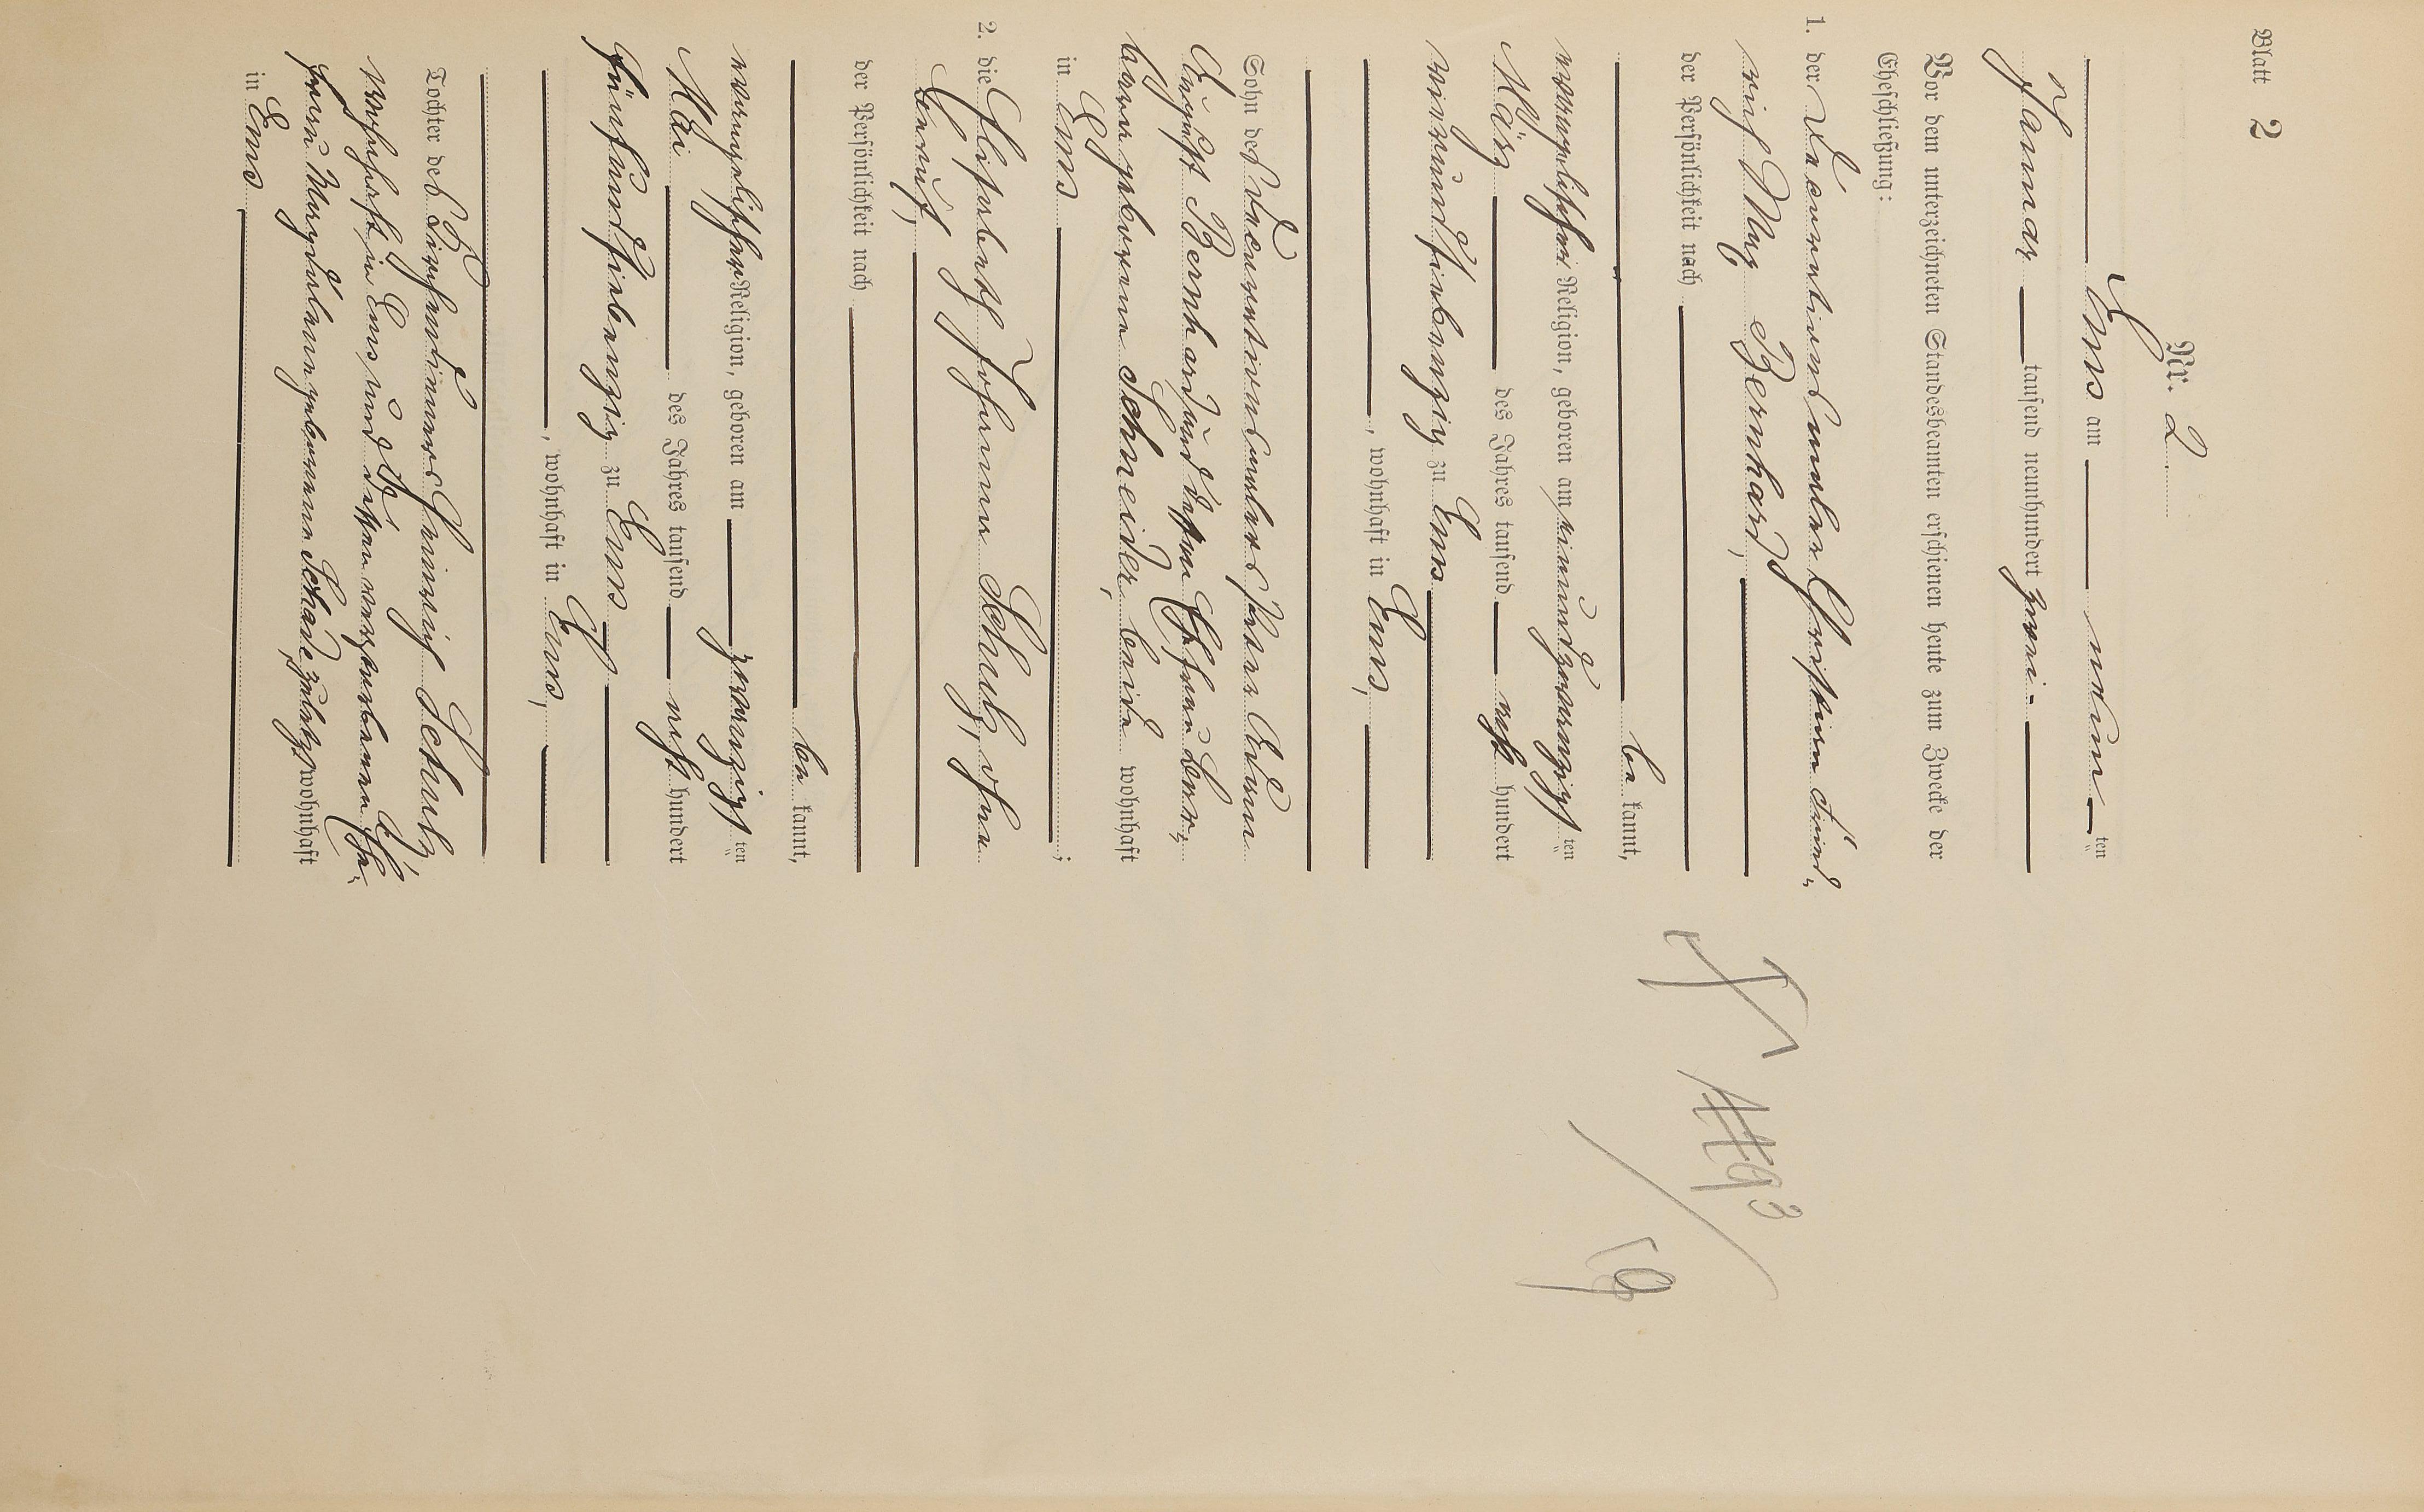 Blatt 2
Nr. 2
Ems am neun ten
Januar tausend neunhundert zwei
Vor dem unterzeichneten Standesbeamten erschienen heute zum Zwecke der
Eheschließung:
1. der Decorationsmaler Christian Fried-
rich Bernhard,
der Persönlichkeit nach
be kannt,
evangelischer Religion, geboren am einundzwanzigsten
März des Jahres tausend acht hundert
vierundsiebenzig zu Ems
, wohnhaft in Ems,
Sohn des Decorationsmalers Peter Adam
August Bernhard und dessen Ehefrau Bar-
bara geborene Schneider, beide wohnhaft
in Ems ;
2. die Elisabeth Johanna Schulz, ohne
Beruf,
der Persönlichkeit nach
be kannt,
evangelischer Religion, geboren am zwanzigsten
Mai des Jahres tausend acht hundert
fünfundsiebenzig zu Ems
, wohnhaft in Ems,
Tochter des Ludwig Schulz
wohnhaft in Ems, und dessen verstorbenen Ehe-
frau Magdalene geborene Schade, zuletzt wohnhaft
in Ems